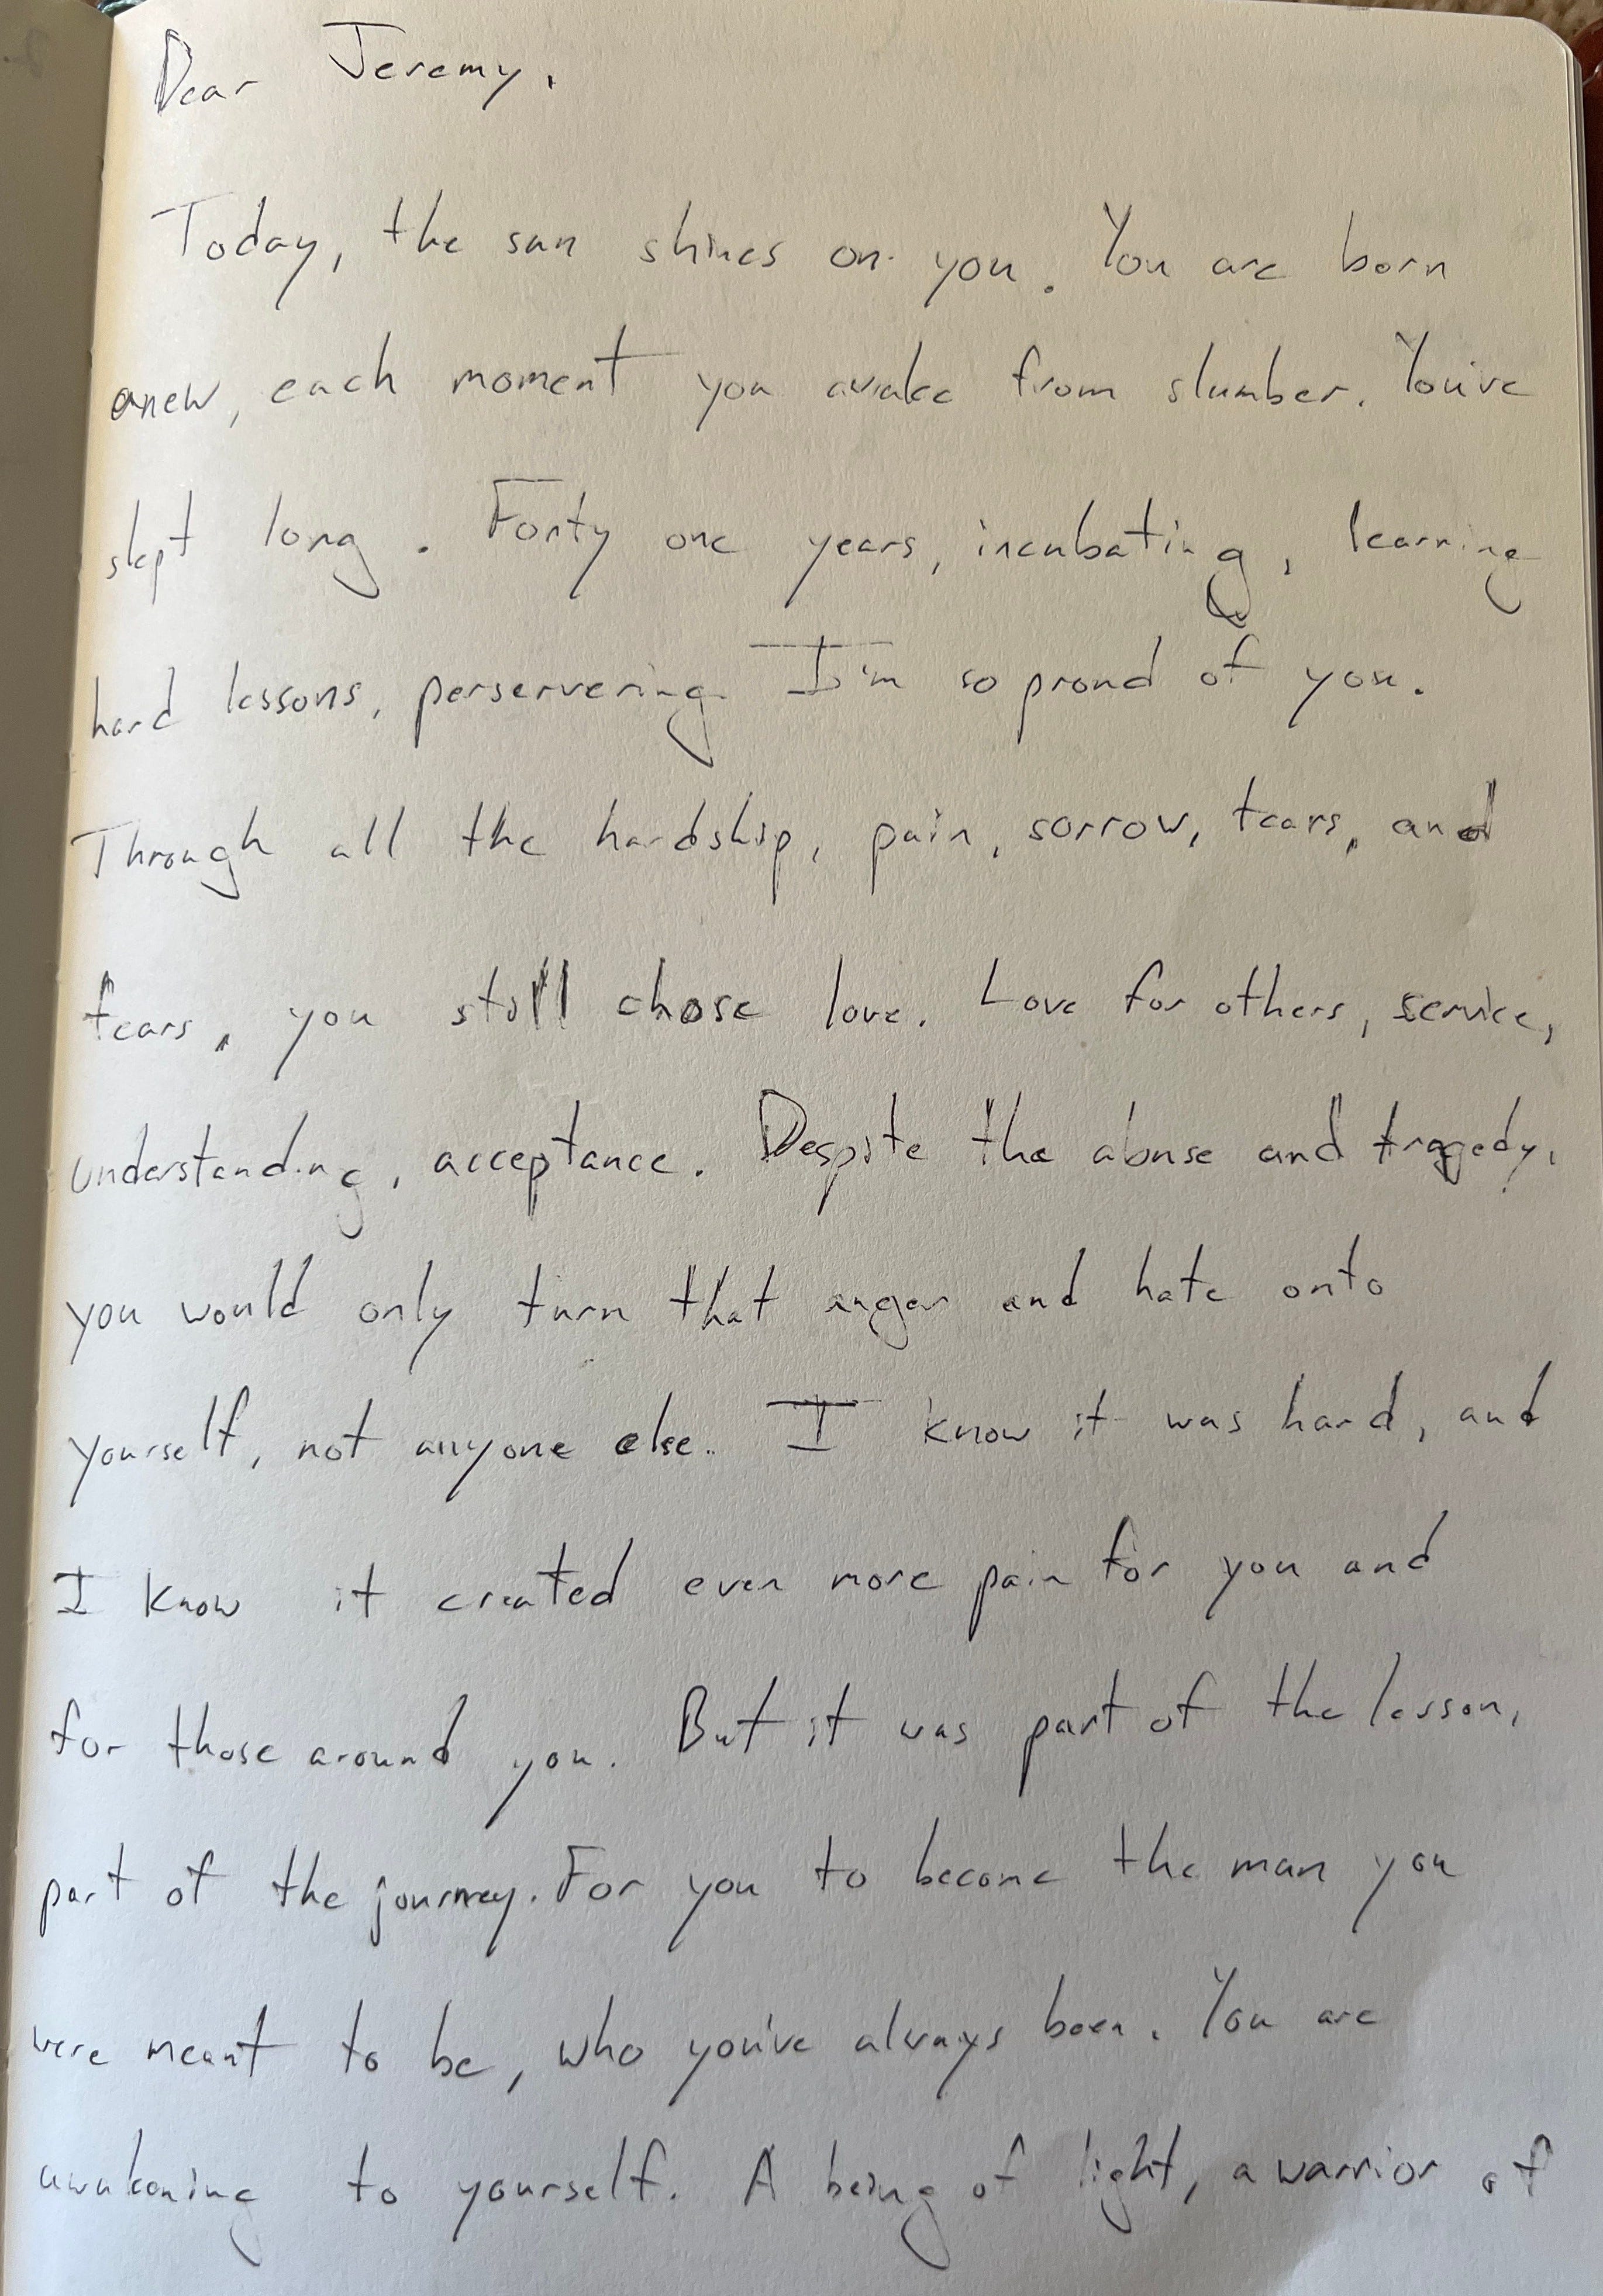 Dear Jeremy,
Today, the sun shines on you. You are born
anew, each moment you awake from slumber. You've
slept long. Forty one years, incubating, learning
hard lessons, perservering. I'm so proud of you.
Through all the hardship, pain, sorrow, tears, and
fears, you still chose love. Love for others, service,
understanding, acceptance. Despite the abuse and tragedy,
you would only turn that anger and hate onto
yourself, not anyone else. I know it was hard, and
I know it created even more pain for you and
for those around you. But it was part of the lesson,
part of the journey. For you to become the man you
were meant to be, who you've always been. You are
awakening to yourself. A being of light, a warrior of